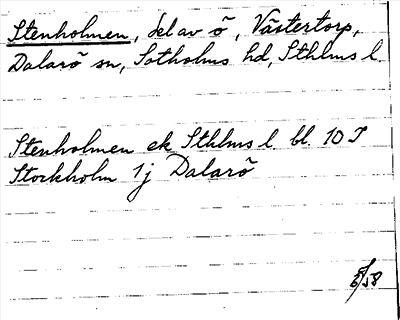 Stenholmen, del av ö, Västertorp,
Dalarö sn, Sotholms hd, Sthlms l.
Stenholmen ek Sthlms l. bl. 10 I
Stockholm 1j Dalarö